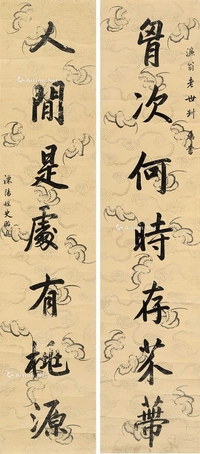 漁翁老世
胷次何時存芥蔕
人間是處有桃源
溧陽姪史貽